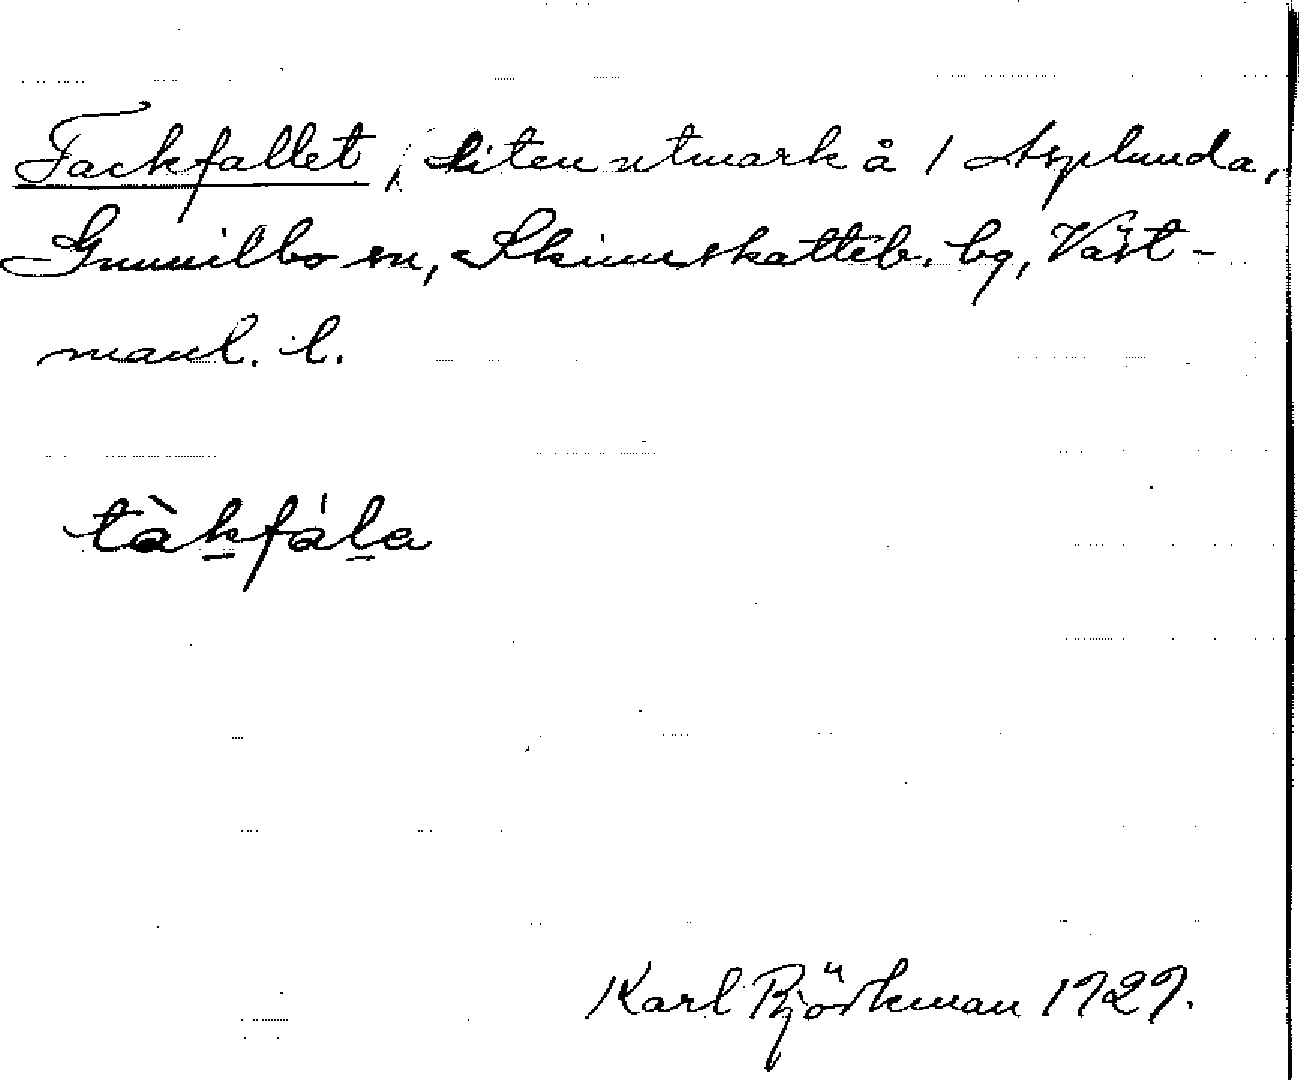 Tackfallet, liten utmark å 1 Asplunda,
Gunnilbo sn, Skinnskatteb. bg, Väst-
manl. l.
tàkfála
Karl Björkman 1929.